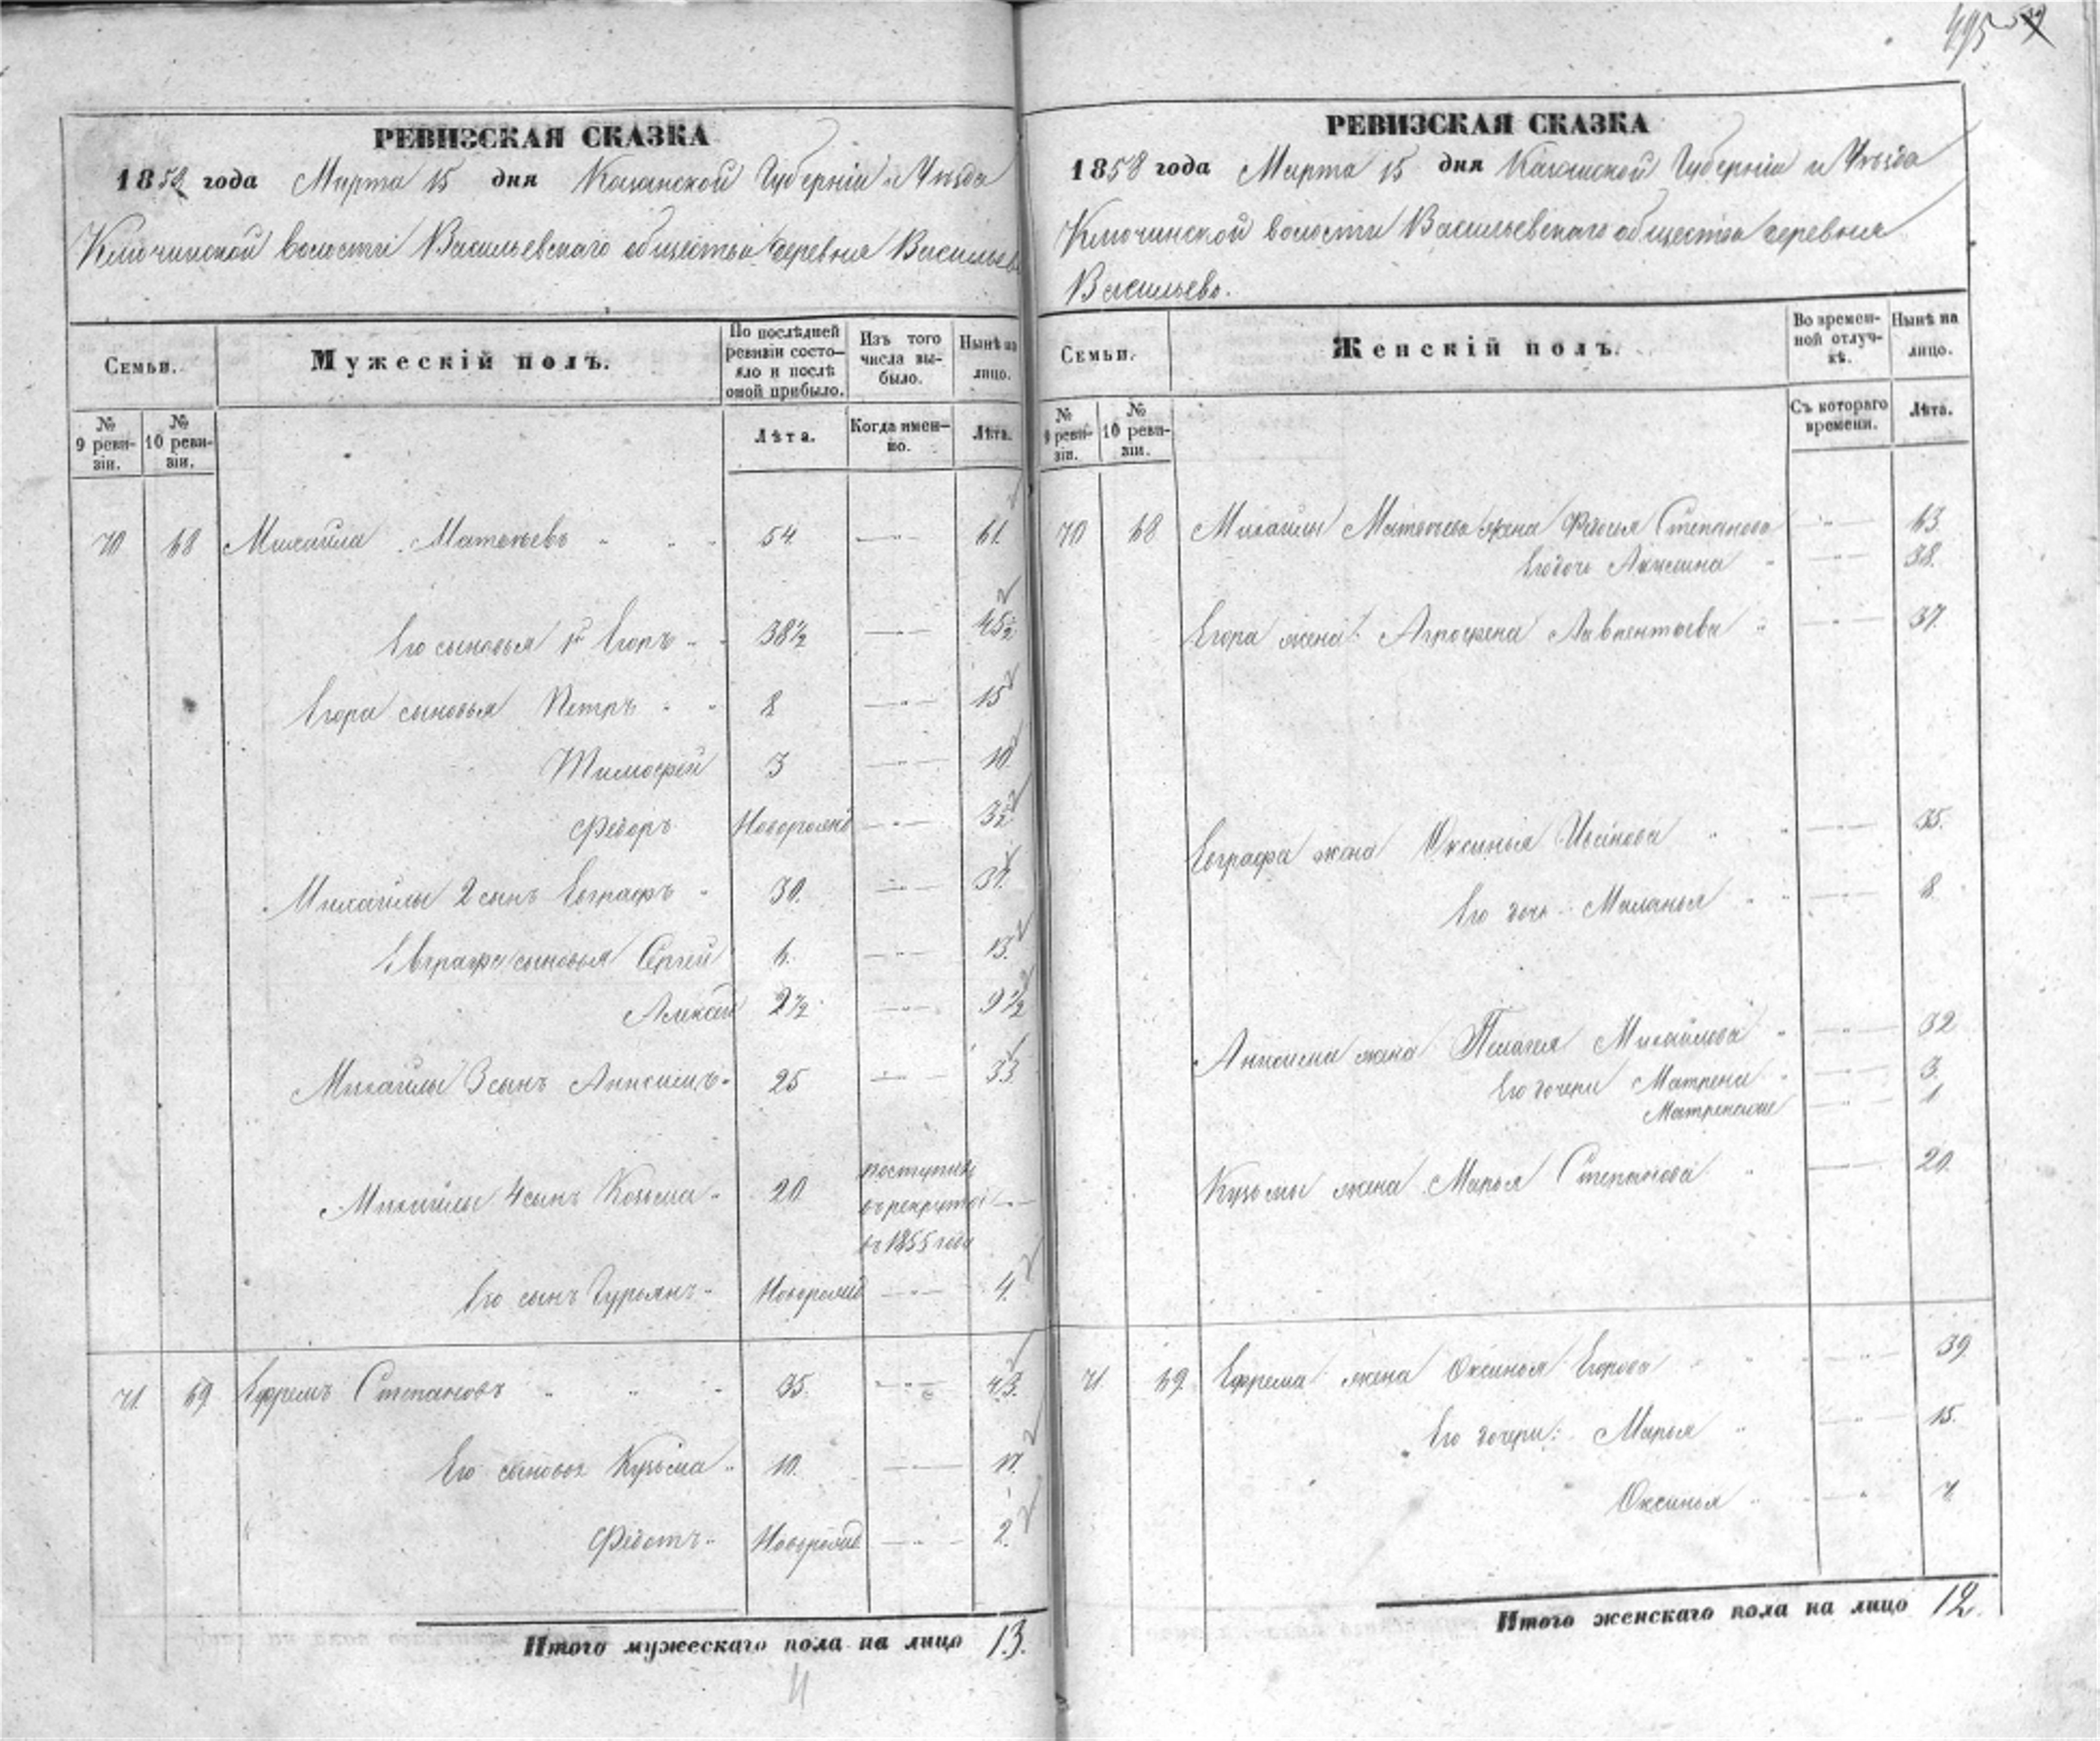 495
РЕВИЗСКАЯ СКАЗКА
1858 года Марта 15 дня Казанской Губернiи и Уѣзда
Ключинской волости Васильевскаго общества деревня Васильево
Семьи.
Мужескiй полъ.
По послѣдней ревизiи состо-
яло и послѣ
оной прибыло.
Изъ того
числа вы-
было.
Нынѣ на
лицо.
№
9 реви-
зiи.
№
10 реви-
зiи.
Лѣта.
Когда имен-
но.
Лѣта.
70 68 Михайла Матвѣевъ 54. 61.
Его сыновья 1й Егоръ 38½ 45½
Егора сыновья Петръ 8 15
Тимофей 3 10
Федоръ Новорожд 3½
Михайлы 2 сынъ Евграфъ 30. 37.
Евграфа сыновья Сергей 6. 13.
Алексей 2½ 9½
Михайлы 3 сынъ Анисимъ 25 33.
Михайлы 4 сынъ Козьма 20 поступилъ
въ рекруты
въ 1855 году
Его сынъ Гурьянъ Новорожд 4.
71. 69. Ефремъ Степановъ 35. 43.
Его сыновья Кузьма 10. 17.
Федотъ Новорожд 2.
Итого мужескаго пола на лицо 13.
РЕВИЗСКАЯ СКАЗКА
1858 года Марта 15 дня Казанской Губернiи и Уѣзда
Ключинской волости Васильевскаго общества деревня
Васильево.
Семьи.
Женскiй полъ.
Во времен-
ной отлуч-
кѣ.
Нынѣ на
лицо.
№
9 реви-
зiи.
№
10 реви-
зiи.
Съ котораго
времени.
Лѣта.
70 68 Михайлы Матвѣева жена Степанова 63.
Его дочь Акулина 38.
Егора жена Агрофена Лаврентьева 37.
Евграфа жена Оксинья Иванова 35.
Его дочь Маланья 8.
Анисима жена Пелагея Михайлова 32
Его дочери Матрена 3.
1
Кузьмы жена Марья Степанова 29.
71. 69. Ефрема жена Оксинья Егорова 39.
Его дочери: Марья 15.
Оксинья 7.
Итого женскаго пола на лицо 12.